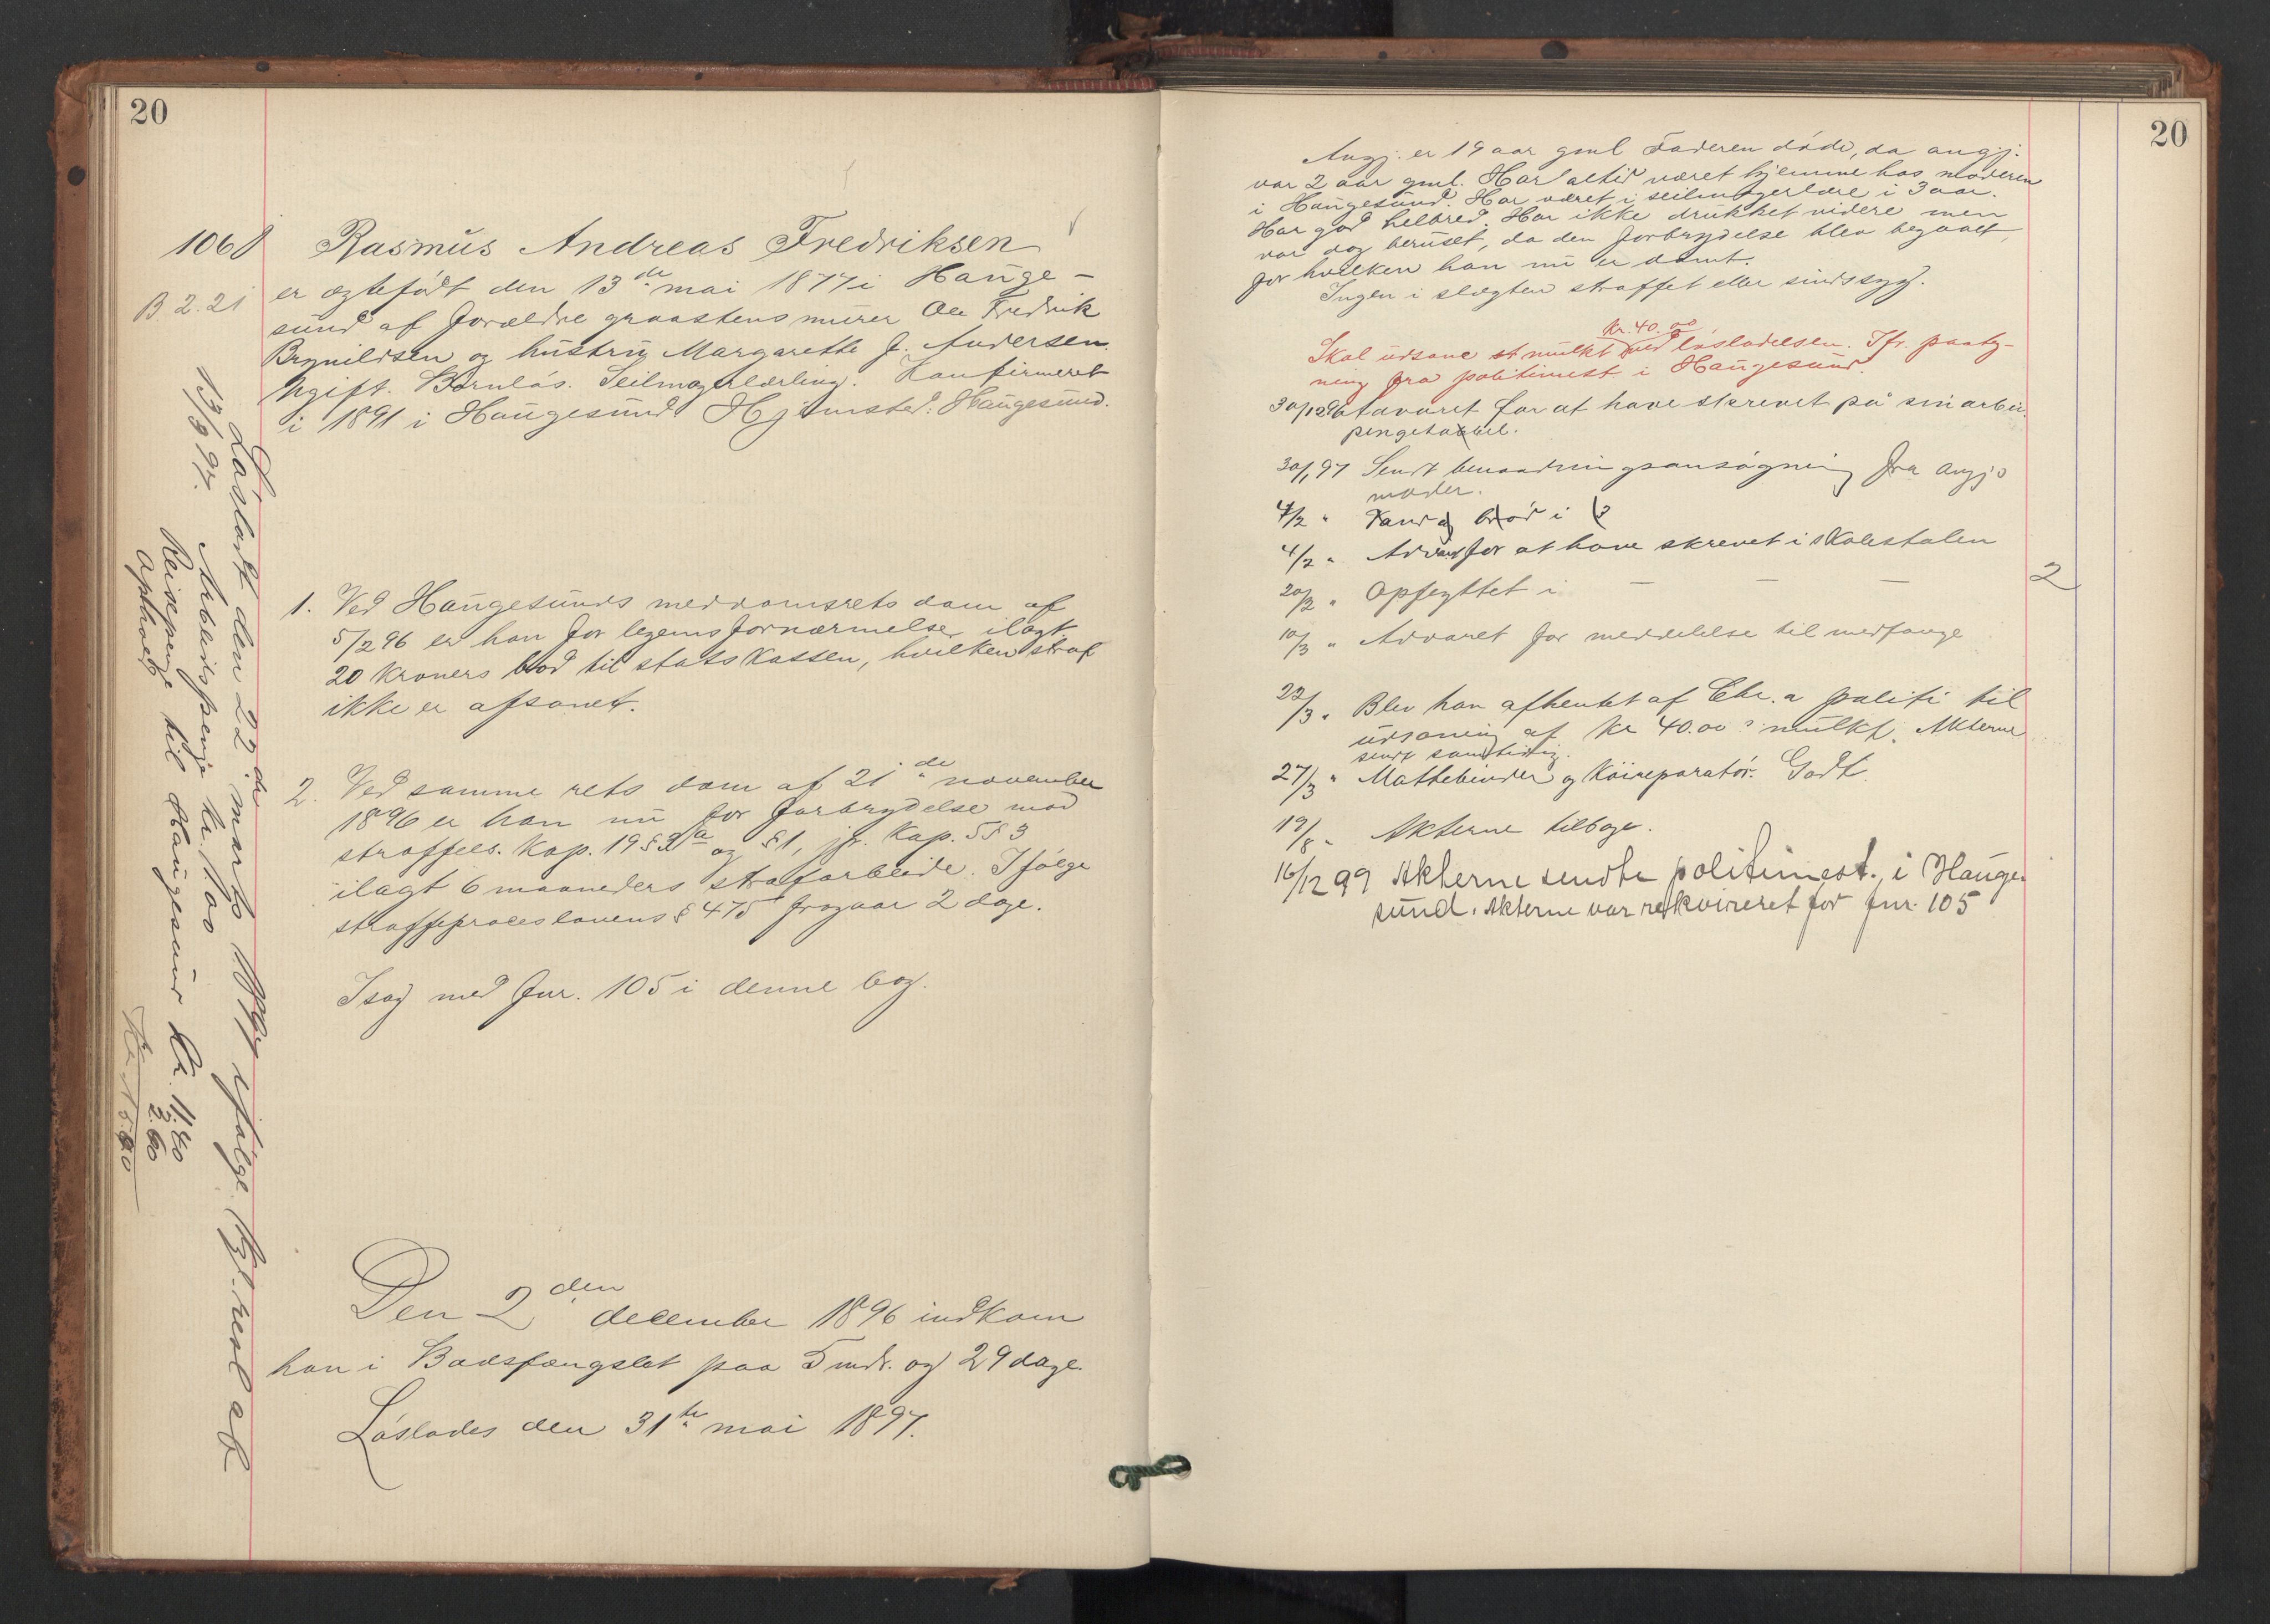 20
106
Rasmus Andreas Fredriksen
B. 2. 21
er ægtefødt den 13de mai 1877 i Hauge-
sund af forældre graastensmurer Ole Fredrik
Brynildsen og hustru Margarethe J. Andersen.
Ugift. Barnløs. Seilmagerlærling. Konfirmeret
i 1891 i Haugesund. Hjemsted: Haugesund.
1. Ved Haugesunds meddomsrets dom af
5/2 96 er han for legemsfornærmelse ilagt
20 kroners bod til statskassen, hvilken straf
ikke er afsonet.
2. Ved samme rets dom af 21de november
1896 er han nu for forbrydelse mod
straffels. Kap. 19 § 2 a og § 1, jfr. Kap. 5 § 3
ilagt 6 maaneders strafarbeide. Ifølge
straffeproceslovens § 475 fragaar 2 dage.
Isag med fnr. 105 i denne bog.
Den 2den december 1896 indkom
han i Bodsfængslet paa 5 mdr. og 29 dage.
Løslades den 31te mai 1897.
Løsladt den 22de marts 1897 ifølge kgl. resol af
13/3 97.
Arbeidspenge kr. 1.00
Reisepenge til Haugesund kr. 11.40
Ophold 2.60
20
Angj. er 19 aar gml. Faderen døde, da angj.
var 2 aar gml. Har altid været hjemme hos moderen
i Haugesund. Har været i seilmagerlære i 3 aar.
Har god helbred. Har ikke drukket videre men
var dog beruset, da den forbrydelse blev begaaet,
for hvilken han nu er dømt.
Ingen i slægten straffet eller sindssyg.
kr. 40.00
Skal udsone st mulkt ved løsladelsen. Jfr. paateg-
ning fra politimest i Haugesund.
30/12 96 Advaret for at have skrevet på sin arbei.
pengetabel.
30/1 97 Sendt benaadningsansøgning fra angj's
moder.
4/2 " Vand og brød i 3
4/2 " Advaret for at have skrevet i skolestolen
20/2 " Opflyttet i — — — 2
10/3 " Advaret for meddelelse til medfange
22/3 " Blev han afhentet af Chr.a politi til
udsoning af kr 40.00 i mulkt. Akterne
sendt samtidig.
27/3 " Mattebinder og køireparatør. Godt.
19/8 " Akterne tilbage.
16/12 99 Akterne sendte politimest. i Hauge-
sund. Akterne var rekvireret for fnr. 105